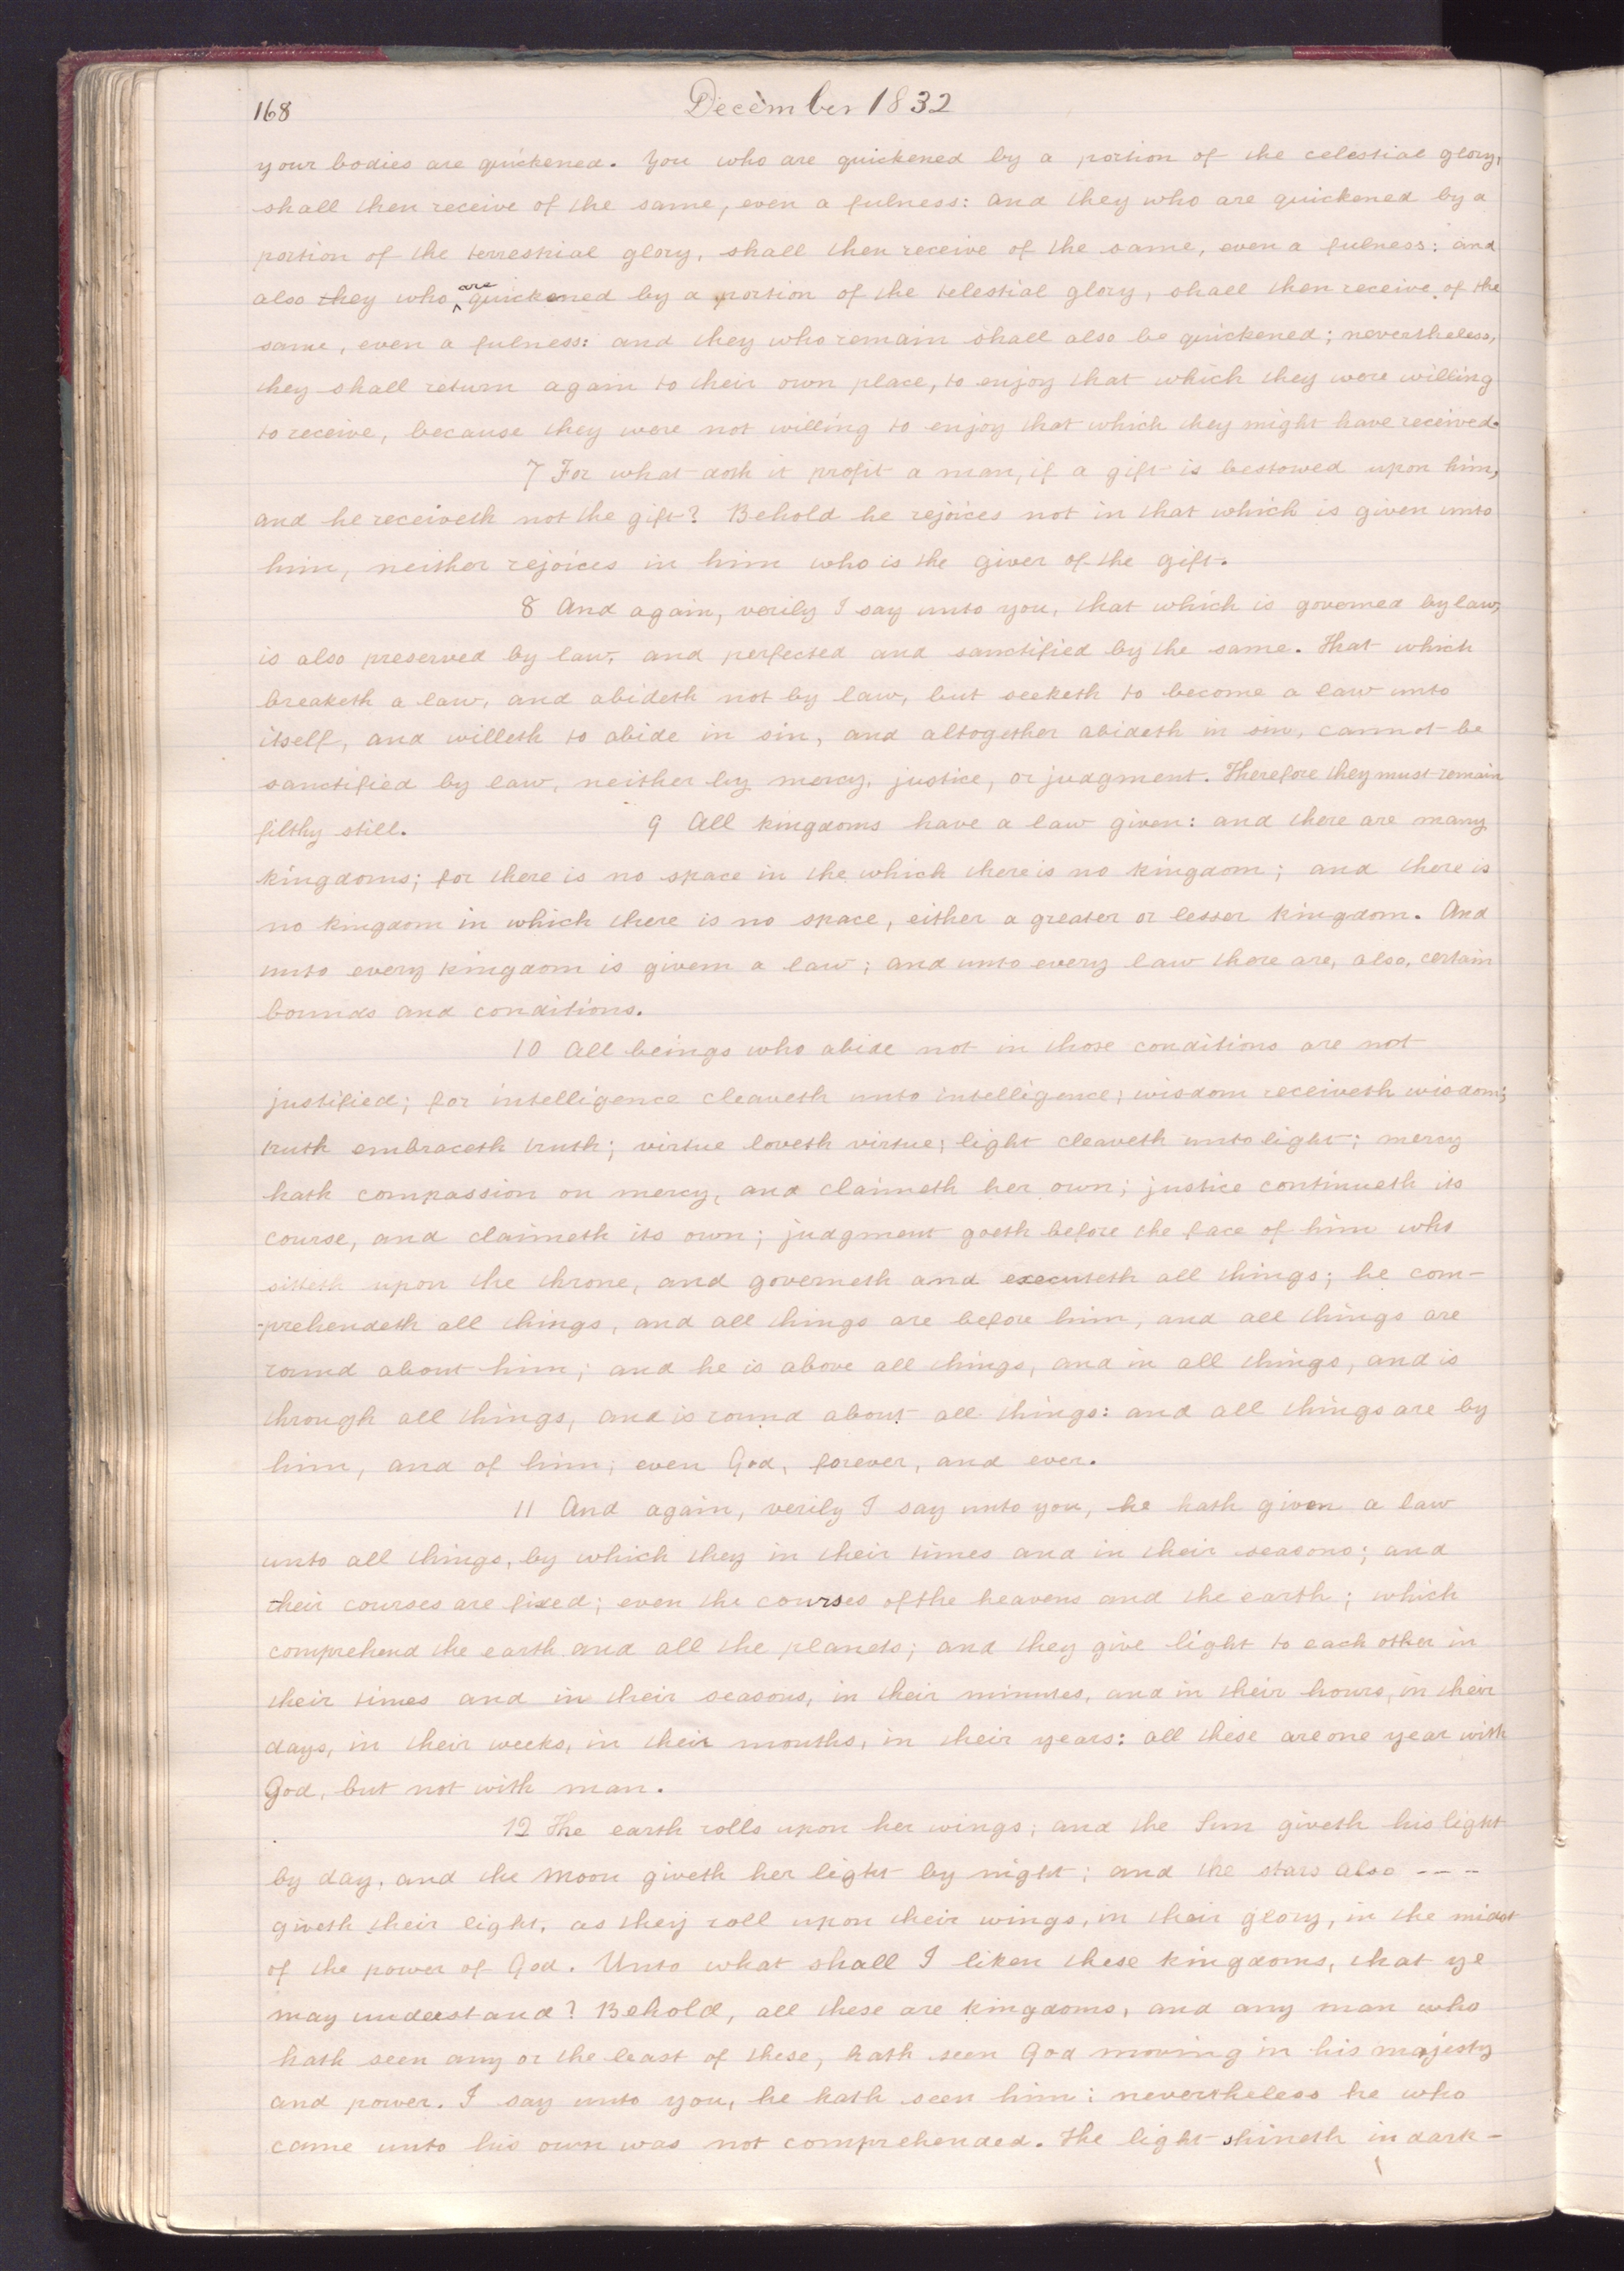 168
December 1832
your bodies are quickened. You who are quickened by a portion of the celestial glory,
shall then receive of the same, even a fulness: and they who are quickened by a
portion of the terrestrial glory, shall then receive of the same, even a fulness: and
also they who are quickened by a portion of the telestial glory, shall then receive of the
same, even a fulness: and they who remain shall also be quickened; nevertheless,
they shall return again to their own place, to enjoy that which they were willing
to receive, because they were not willing to enjoy that which they might have received.
7 For what doth it profit a man, if a gift is bestowed upon him,
and he receiveth not the gift? Behold he rejoices not in that which is given unto
him, neither rejoices in him who is the giver of the gift.
8 And again, verily I say unto you, that which is governed by law,
is also preserved by law, and perfected and sanctified by the same. That which
breaketh a law, and abideth not by law, but seeketh to become a law unto
itself, and willeth to abide in sin, and altogether abideth in sin, cannot be
sanctified by law, neither by mercy, justice, or judgment. Therefore they must remain
filthy still. 9 All kingdoms have a law given: and there are many
kingdoms; for there is no space in the which there is no kingdom; and there is
no kingdom in which there is no space, either a greater or lesser kingdom. And
unto every kingdom is givem a law; and unto every law there are, also, certain
bounds and conditions.
10 All beings who abide not in those conditions are not
justified; for intelligence cleaveth unto intelligence; wisdom receiveth wisdom;
truth embraceth truth; virtue loveth virtue; light cleaveth unto light; mercy
hath compassion on mercy, and claimeth her own; justice continueth its
course, and claimeth its own; judgment goeth before the face of him who
sitteth upon the throne, and governeth and executeth all things; he com-
-prehendeth all things, and all things are before him, and all things are
round about him; and he is above all things, and in all things, and is
through all things, and is round about all things: and all things are by
him, and of him; even God, forever, and ever.
11 And again, verily I say unto you, he hath given a law
unto all things, by which they in their times and in their seasons; and
their courses are fixed; even the courses of the heavens and the earth; which
comprehend the earth and all the planets; and they give light to each other in
their times and in their seasons, in their minutes, and in their hours, in their
days, in their weeks, in their months, in their years: all these are one year with
God, but not with man.
12 The earth rolls upon her wings; and the Sun giveth his light
by day, and the Moon giveth her light by night; and the stars also ---
giveth their light, as they roll upon their wings, in their glory, in the midst
of the power of God. Unto what shall I liken these kingdoms, that ye
may understand? Behold, all these are kingdoms, and any man who
hath seen any or the least of these, hath seen God moving in his majesty
and power. I say unto you, he hath seen him: nevertheless he who
came unto his own was not comprehended. The light shineth in dark-